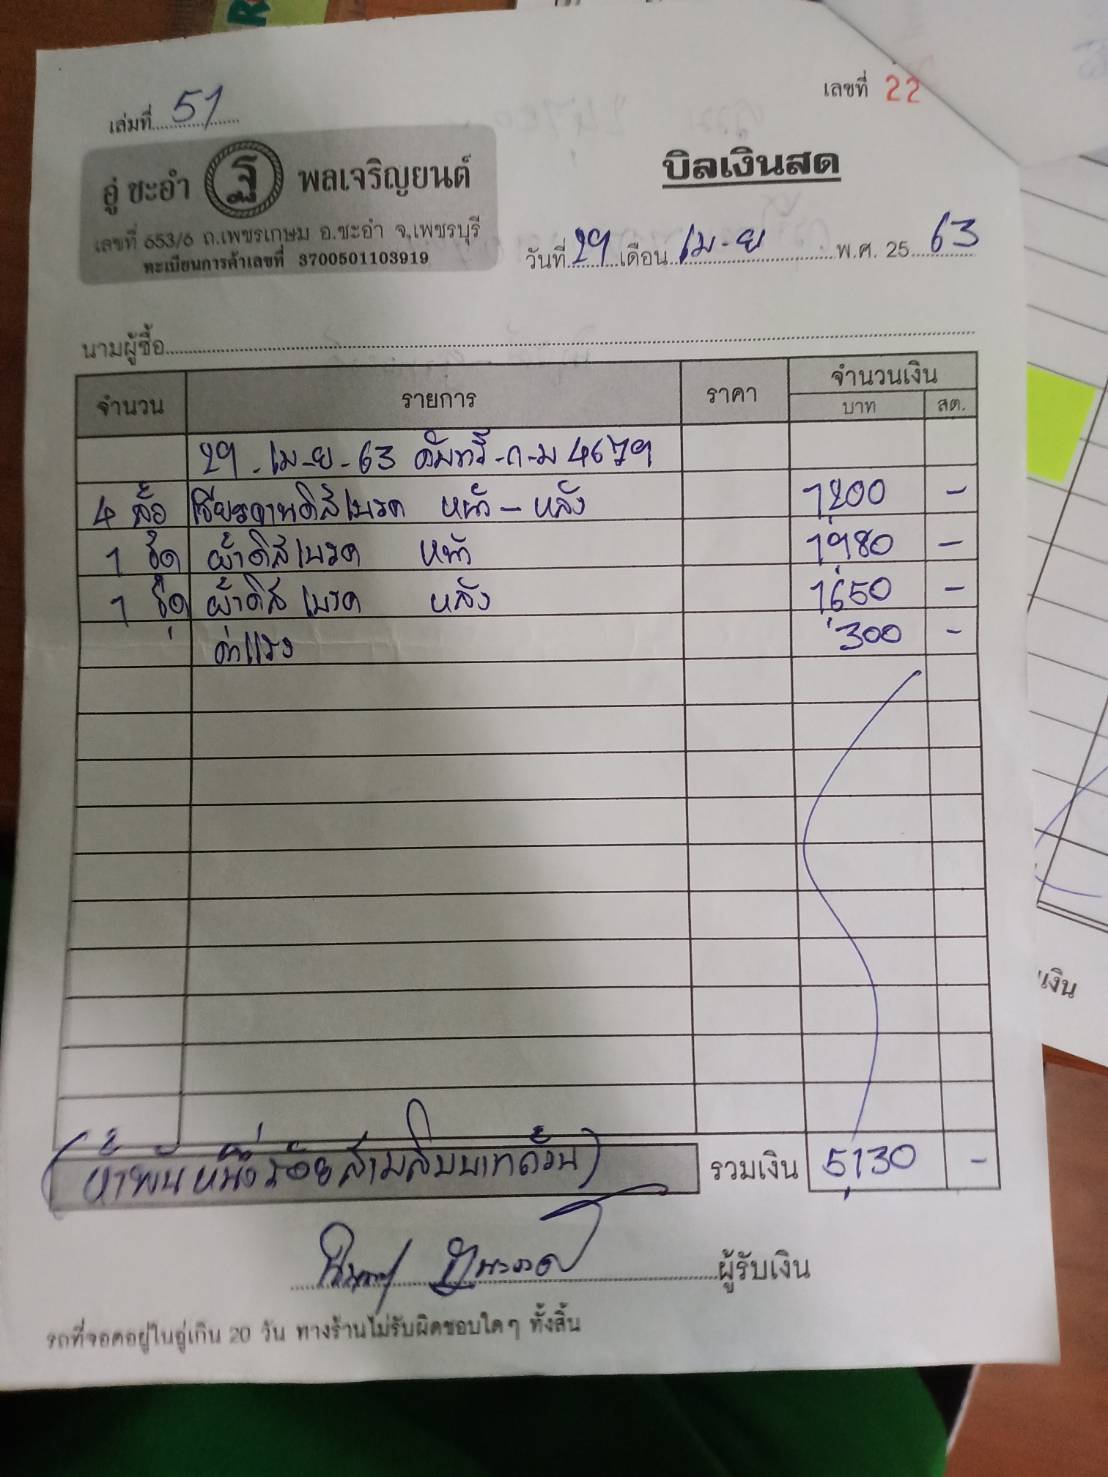 เล่มที่ 51
เลขที่ 22
อู่ ชะอำ ฐ พลเจริญยนต์
บิลเงินสด
เลขที่ 653/6 ถ.เพชรเกษม อ.ชะอำ จ.เพชรบุรี
ทะเบียนการค้าเลขที่ 3700501103919
วันที่ 29 เดือน เม-ย พ.ศ. 2563
นามผู้ซื้อ
จำนวน รายการ ราคา จำนวนเงิน
บาท สต.
29-เม-ย-63 คัมรี่-ก-ม 4679
4 ล้อ เจียรจานดิสเบรค หน้า-หลัง 1,200 -
1 ชุด ผ้าดิสเบรค หน้า 1,980 -
1 ชุด ผ้าดิสเบรค หลัง 1,650 -
ค่าแรง 300 -
(ห้าพันหนึ่งร้อยสามสิบบาทถ้วน) รวมเงิน 5,130 -
ผู้รับเงิน
รถที่จอดอยู่ในอู่เกิน 20 วัน ทางร้านไม่รับผิดชอบใดๆ ทั้งสิ้น
เงิน